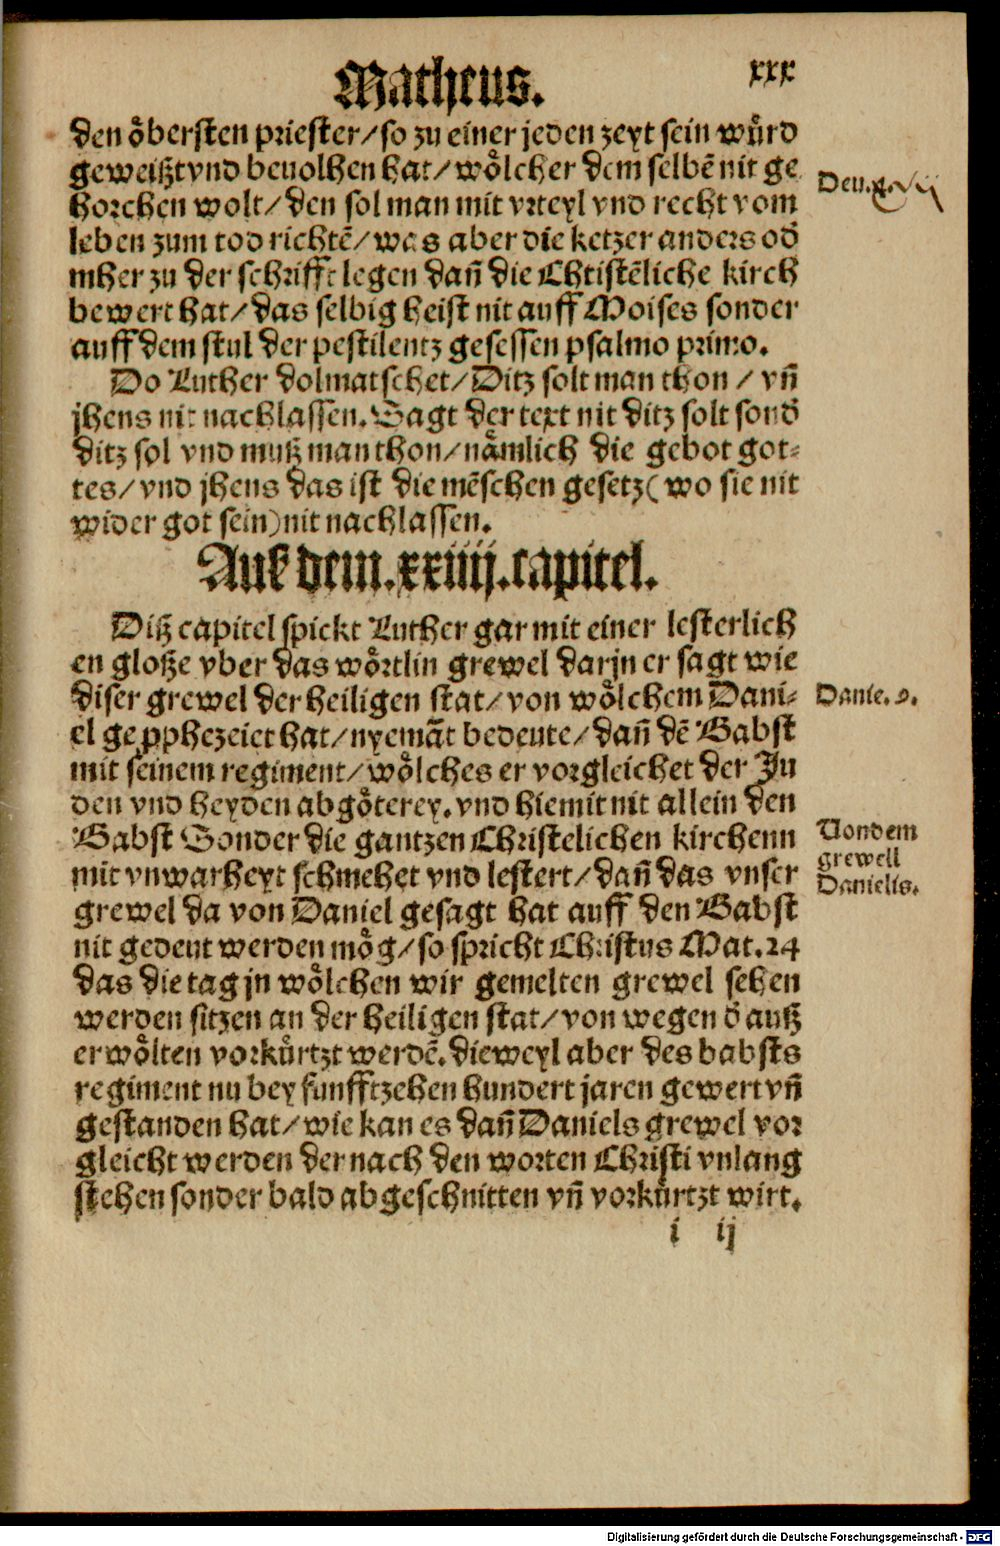 Matheus.
xxx
den oͤbersten priester/so zu einer jeden zeyt sein wuͤrd
geweißt vnd beuolhen hat/woͤlcher dem selbẽ nit ge
horchen wolt/den sol man mit vrteyl vnd recht vom
leben zum tod richtẽ/was aber die ketzer anders od̃
mher zu der schrifft legen dañ die Christẽliche kirch
bewert hat/das selbig heist nit auff Moises sonder
auff dem stul der pestilentz gesessen psalmo primo.
Deu.
Do Luther dolmatschet/Ditz solt man thon/vñ
jhens nit nachlassen.Sagt der text nit ditz solt sond̃
ditz sol vnd muß man thon/naͤmlich die gebot got⸗
tes/vnd jhens das ist die mẽschen gesetz(wo sie nit
wider got sein)nit nachlassen.
Auß dem.xxiiij.capitel.
Diß capitel spickt Luther gar mit einer lesterlich
en gloße vber das woͤrtlin grewel darjn er sagt wie
diser grewel der heiligen stat/von woͤlchem Dani⸗
el geꝓphezeiet hat/nyemãt bedeute/dañ dẽ Babst
mit seinem regiment/woͤlches er vorgleichet der Ju
den vnd heyden abgoͤterey.vnd hiemit nit allein den
Babst Sonder die gantzen Christelichen kirchenn
mit vnwarheyt schmehet vnd lestert/dañ das vnser
grewel da von Daniel gesagt hat auff den Babst
nit gedeut werden moͤg/so spricht Christus Mat.24
das die tag jn woͤlchen wir gemelten grewel sehen
werden sitzen an der heiligen stat/von wegen d̃ auß
erwoͤlten vorkuͤrtzt werdẽ.dieweyl aber des babsts
regiment nu bey funfftzehen hundert jaren gewert vñ
gestanden hat/wie kan es dañ Daniels grewel vor
gleicht werden der nach den worten Christi vnlang
stehen sonder bald abgeschnitten vñ vorkuͤrtzt wirt.
Danie.9.
Von dem
grewell
Danielis.
i ij
Digitalisierung gefördert durch die Deutsche Forschungsgemeinschaft - DFG